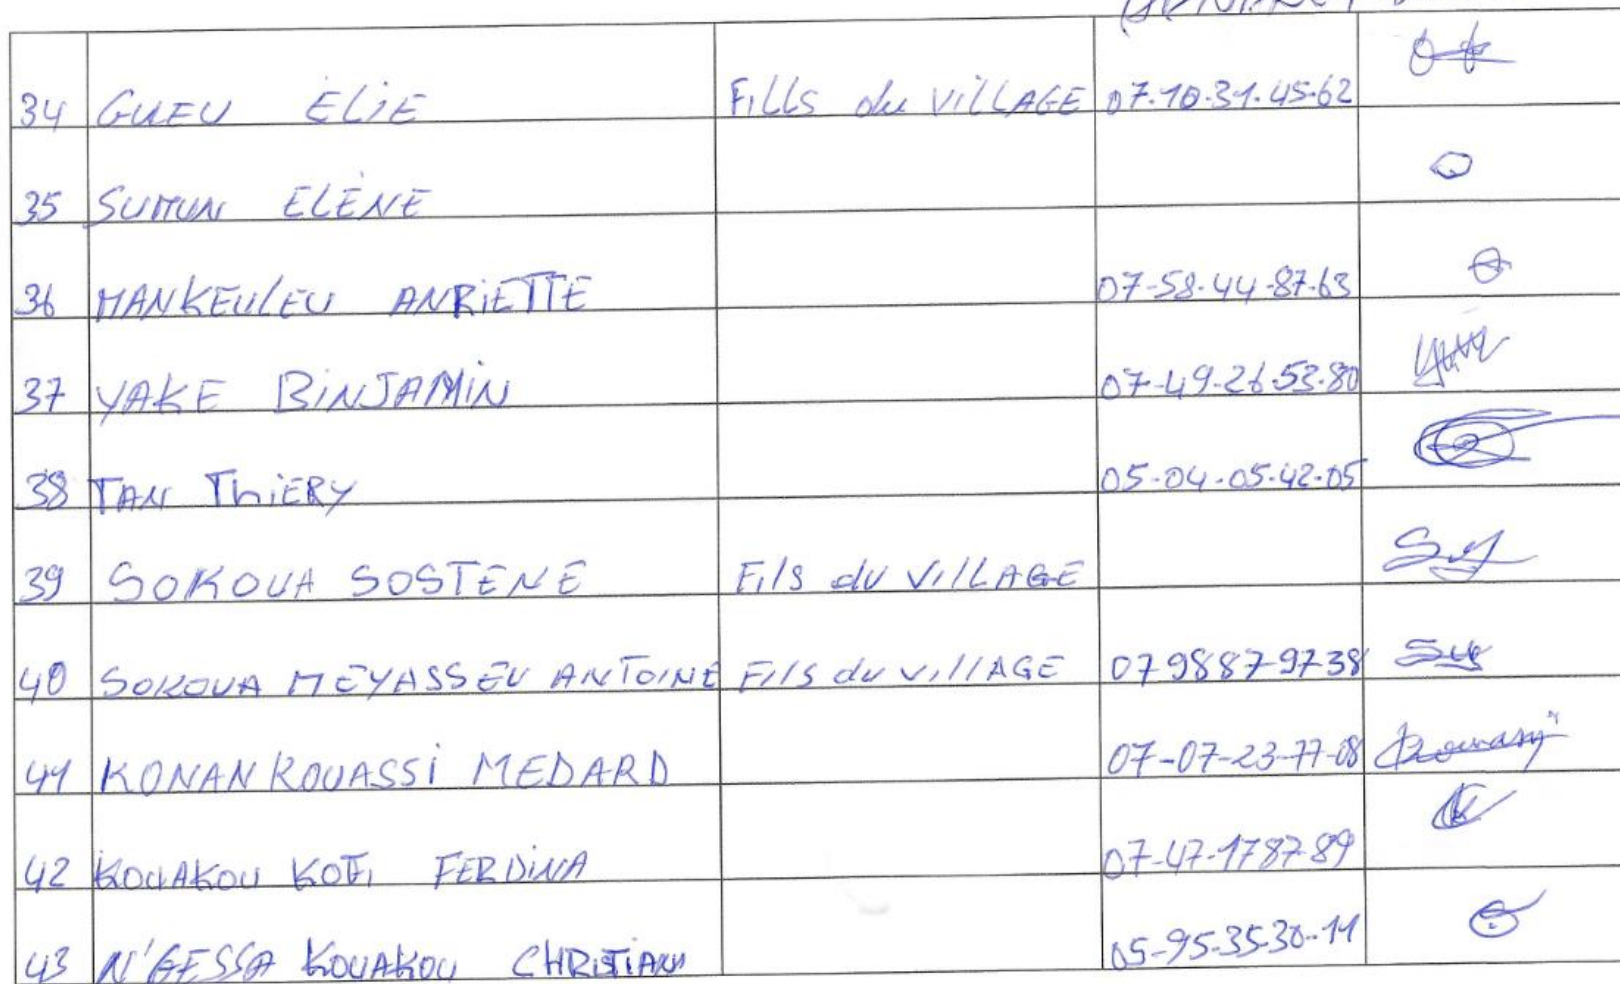 34 GUEU ELIE Fills du VILLAGE 07.10.31.45.62
35 SUMUN ELENE
36 MANKEULEU ANRIETTE 07-58-44-87-63
37 YAKE BINJAMIN 07-49-26-53-80
38 TAN ThiERY 05-04-05-42-05
39 SOKOUA SOSTENE Fils du VillAGE
40 SOKOUA MEYASSEU ANTOINE Fils du VillAGE 0798879738
41 KONAN KOUASSI MEDARD 07-07-23-77-08
42 KOUAKOU KOFI FERDINA 07-47-1787-89
43 N'GESSA KOUAKOU CHRISTIAN 05-95-35-30-11